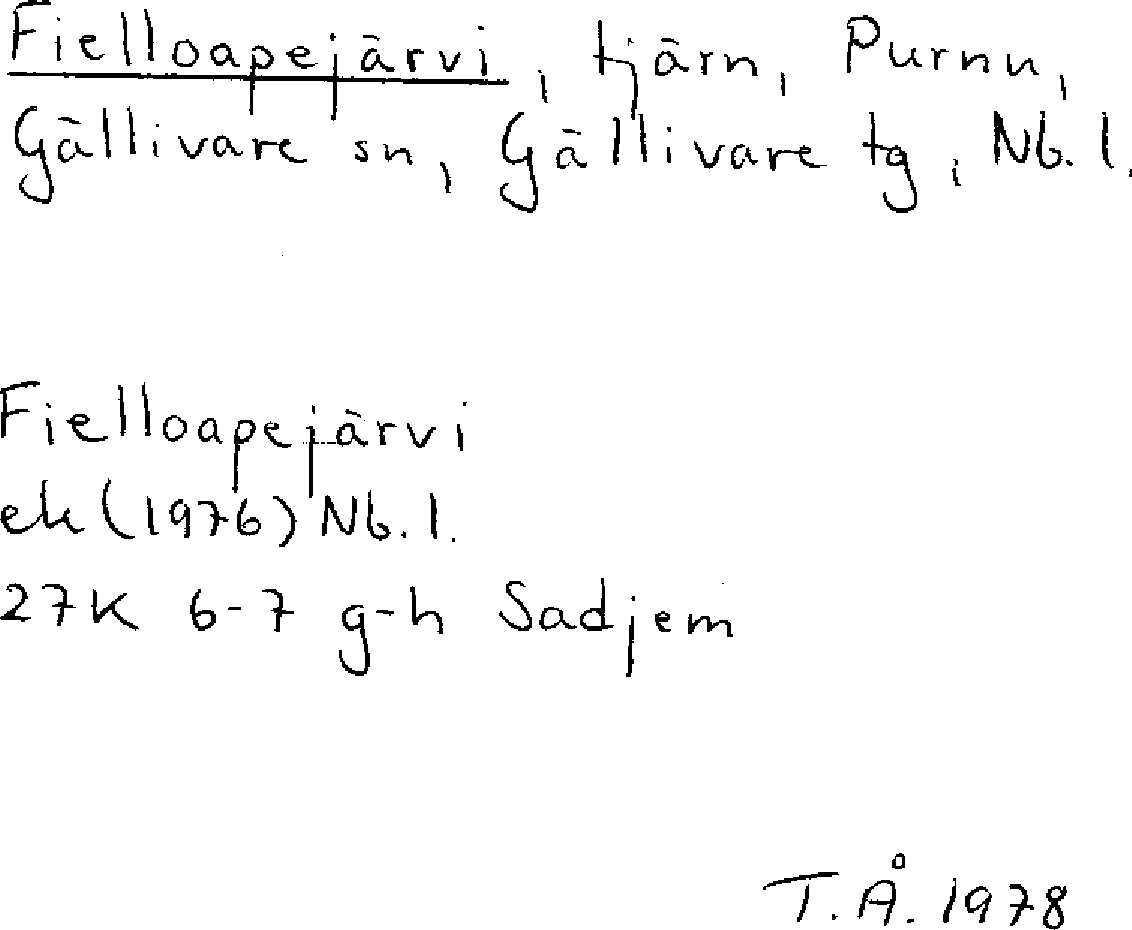 Fielloapejärvi, tjärn, Purnu,
Gällivare sn, Gällivare tg, Nb. l.
Fielloapejärvi
ek (1976) Nb. l.
27K 6-7 g-h Sadjem
T.Å. 1978